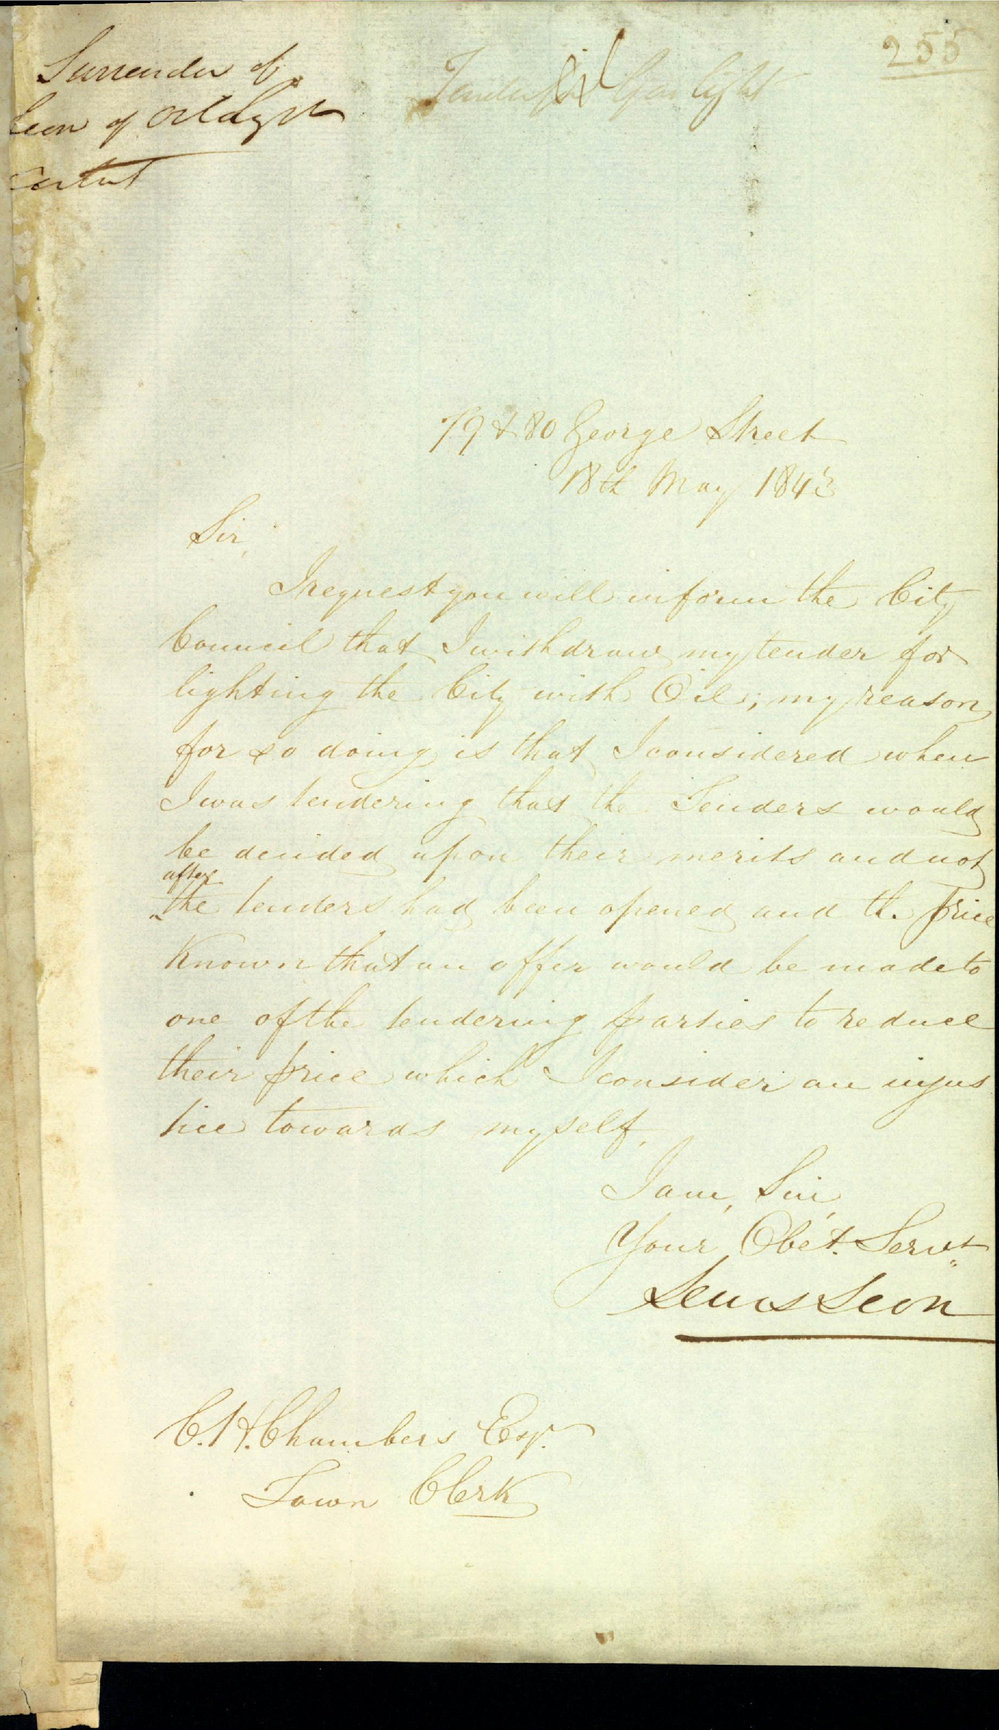 255
Surrender of
Leon of Oil Light
Tender for Gas light
79 & 80 George Street
18th May 1843
Sir,
I request you will inform the City
Council that I withdraw my tender for
lighting the City with Oil; my reason
for so doing is that I considered when
I was tendering that the Tenders would
be decided upon their merits and not
after
the tenders had been opened and the price
Known that an offer would be made to
one of the tendering parties to reduce
their price which I consider an injus
tice towards myself,
I am, Sir,
Your Obet. Servt
Lewis Leon
C. H. Chambers Esqr.
Town Clerk